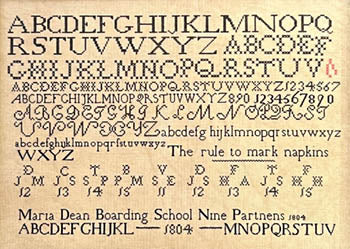 ABCDEFGHIJKLMNOPQ
RSTUVWXYZ ABCDEF
GHIJKLMNOPQRSTUV
ABCDEFGHIJKLMNOPQRSTUVWXYZ1234567
ABCDEFGHIJKLMNOPQRSTUVWXYZ890 1234567890
ABCDEFGHIJKLMNOPQRST
UVWXYZ abcdefg hijklmnopqrstuvwxyz
abcdefghijklmnopqrstuvwxyz
WXYZ The rule to mark napkins
D C T B V D E F T F
J M J S S P P M S E J S J H A H J S H F
12 13 14 15 12 13 14 15
Maria Dean Boarding School Nine Partners 1804
ABCDEFGHIJKL — 1804 — MNOPQRSTUV